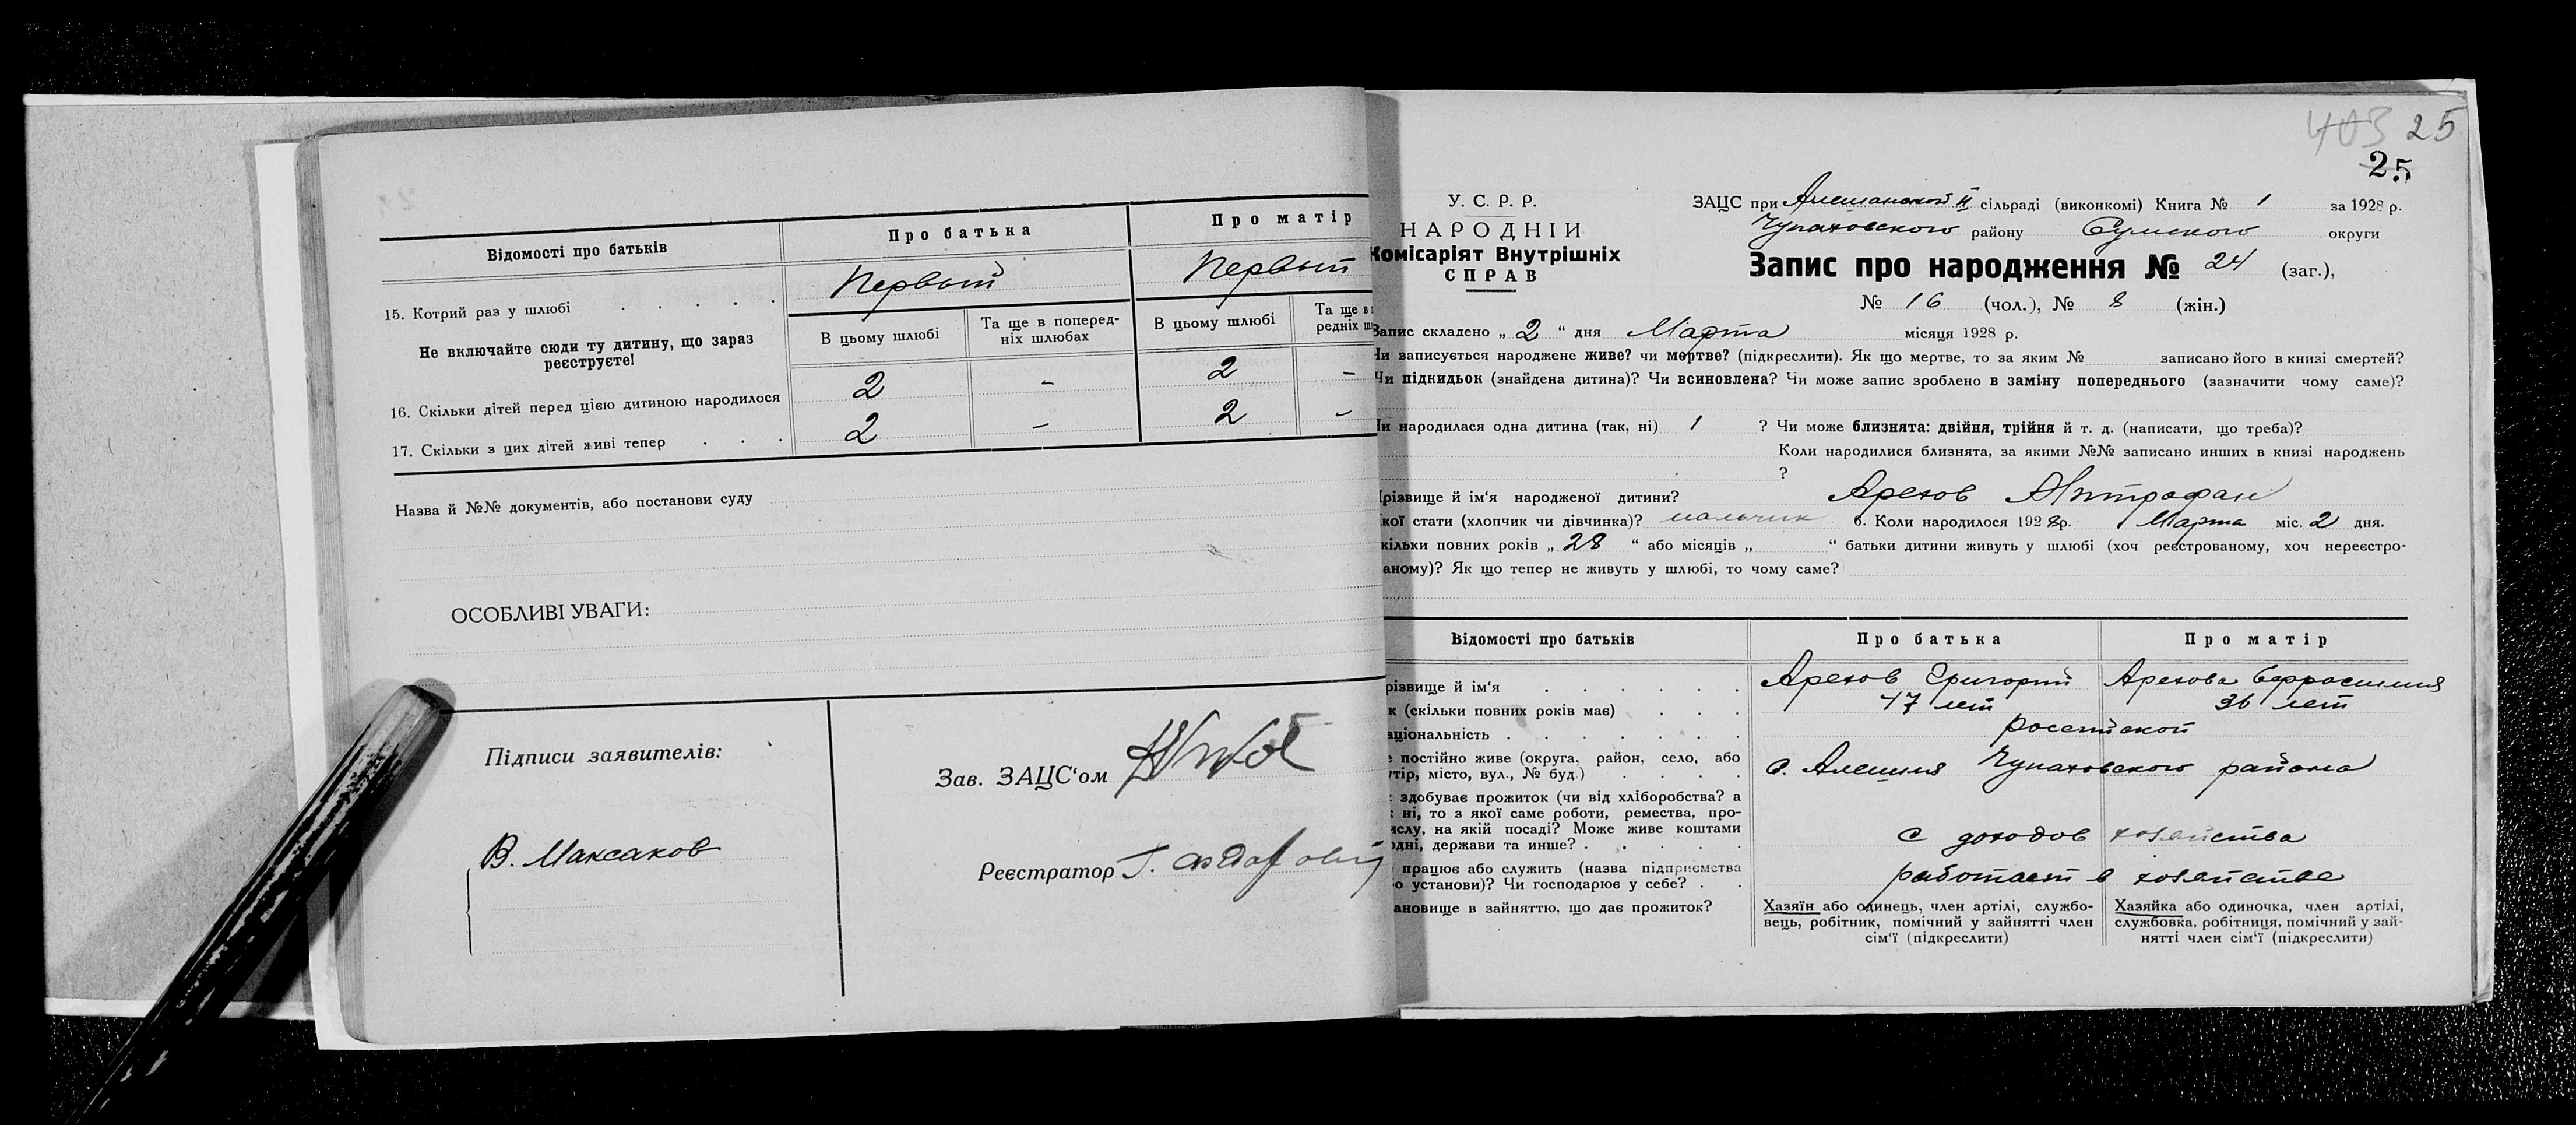 Відомості про батьків
Про батька
Про матір
15. Котрий раз у шлюбі
Первый
Первый
Не включайте сюди ту дитину, що зараз
реєструєте!
В цьому шлюбі
Та ще в поперед-
ніх шлюбах
В цьому шлюбі
Та ще в
редніх
16. Скільки дітей перед цією дитиною народилося
2 - 2 -
17. Скільки з цих дітей живі тепер
2 - 2 -
Назва й №№ документів, або постанови суду
ОСОБЛИВІ УВАГИ:
Підписи заявителів:
В. Максаков
Зав. ЗАЦС‘ом
Реєстратор
403 25
25
У. С. Р. Р.
НАРОДНІЙ
Комісаріят Внутрішніх
СПРАВ
ЗАЦС при Алешанской II сільраді (виконкомі) Книга № 1 за 1928 р.
Чупаховского району Сумского округи
Запис про народження № 24 (заг.),
№ 16 (чол.), № 8 (жін.)
Запис складено „ 2 “ дня Марта місяця 1928 р.
Чи записується народжене живе? чи мертве? (підкреслити). Як що мертве, то за яким № записано його в книзі смертей?
Чи підкидьок (знайдена дитина)? Чи всиновлена? Чи може запис зроблено в заміну попереднього (зазначити чому саме)?
Чи народилася одна дитина (так, ні) 1 ? Чи може близнята: двійня, трійня й т. д. (написати, що треба)?
Коли народилися близнята, за якими №№ записано инших в книзі народжень
?
різвище й ім‘я народженої дитини? Арехов Митрофан
кої стати (хлопчик чи дівчинка)? мальчик 6. Коли народилося 1928р. Марта міс. 2 дня.
кільки повних років „ 28 “ або місяців „ “ батьки дитини живуть у шлюбі (хоч реєстрованому, хоч нереєстро-
аному)? Як що тепер не живуть у шлюбі, то чому саме?
Відомості про батьків
Про батька
Про матір
різвище й ім‘я
Арехов Григорий
Арехова Ефросиния
к (скільки повних років має)
47 лет
36 лет
аціональність
российской
е постійно живе (округа, район, село, або
утір, місто, вул., № буд.)
с. Алешня Чупаховского района
здобуває прожиток (чи від хліборобства? а
ні, то з якої саме роботи, ремества, про-
ислу, на якій посаді? Може живе коштами
одні, держави та инше?
с доходов хозяйства
працює або служить (назва підприємства
о установи)? Чи господарює у себе?
работает в хозяйстве
ановище в зайняттю, що дає прожиток?
Хазяїн або одинець, член артілі, службо-
вець, робітник, помічний у зайнятті член
сім‘ї (підкреслити)
Хазяйка або одиночка, член артілі,
службовка, робітниця, помічний у зай-
нятті член сім‘ї (підкреслити)